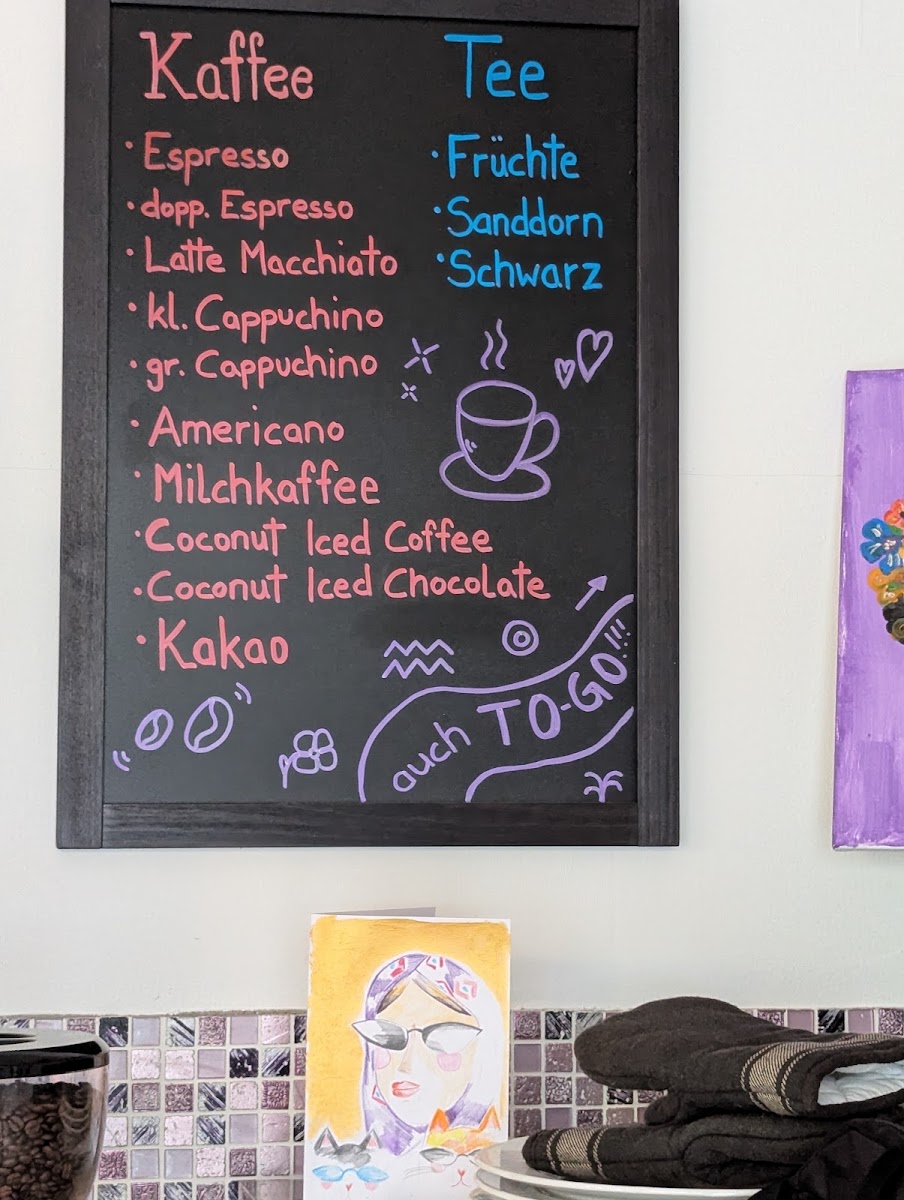 Kaffee
· Espresso
· dopp. Espresso
· Latte Macchiato
· kl. Cappuchino
· gr. Cappuchino
· Americano
· Milchkaffee
· Coconut Iced Coffee
· Coconut Iced Chocolate
· Kakao
Tee
· Früchte
· Sanddorn
· Schwarz
auch TO-GO!!!